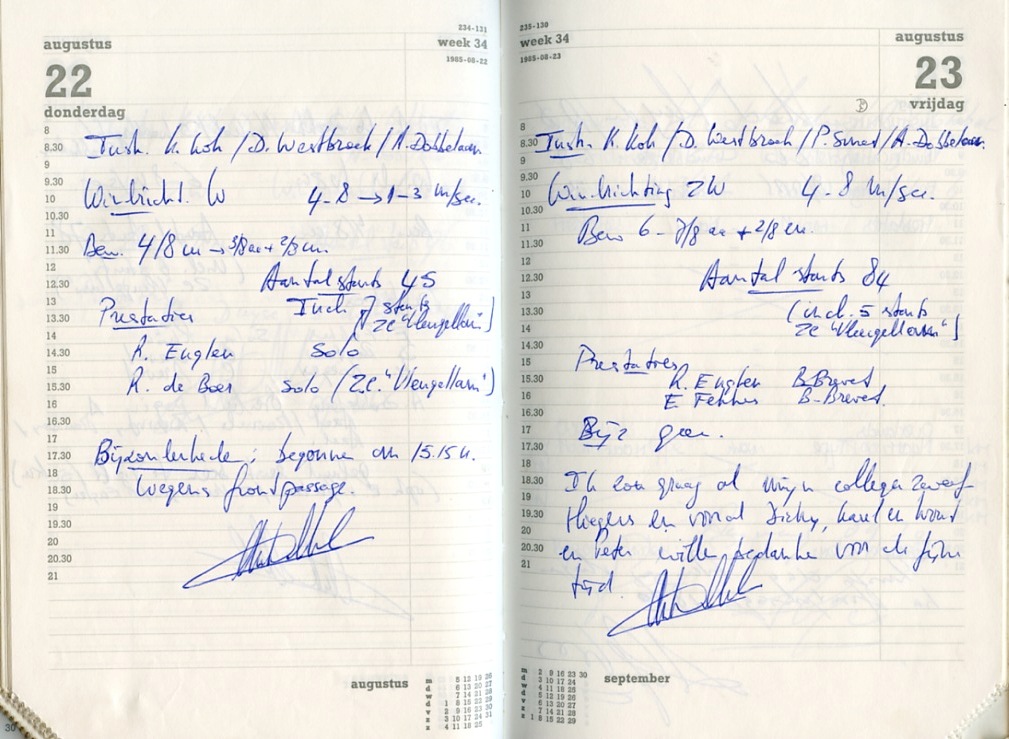 234-131
augustus
week 34
1985-08-22
22
donderdag
8
8.30 Instr. K. Koh / D. Westbroek / A. Dobbelaar
9
9.30
10 Windricht. W 4-8 → 1-3 m/sec.
10.30
11
11.30 Bew. 4/8 cu → 3/8 ac + 2/8 cu.
12
12.30 Aantal starts 45
13 Prestaties Incl. 7 starts
13.30 ZC "Vleugellam")
14
14.30 R. Englen solo
15
15.30 R. de Boer solo (ZC. "Vleugellam")
16
16.30
17
17.30 Bijzonderhede: begonnen om 15.15 u.
18
18.30 wegens frontpassage.
19
19.30
20
20.30
21
augustus
m 5 12 19 26
d 6 13 20 27
w 7 14 21 28
d 1 8 15 22 29
v 2 9 16 23 30
z 3 10 17 24 31
z 4 11 18 25
30
235-130
week 34
augustus
1985-08-23
23
vrijdag
8
8.30 Instr. K. Koh / D. Westbroek / P. / A. Dobbelaar
9
9.30
10 Windrichting ZW 4-8 m/sec.
10.30
11 Bew 6-7/8 ac + 2/8 cu.
11.30
12
12.30 Aantal starts 84
13
13.30 (incl. 5 starts
14 ZC "Vleugellam")
14.30
15 Prestaties
15.30 R. Englen B.Brevet
16 E B-Brevet.
16.30
17 Bijz geen.
17.30
18
18.30 Ik zou graag al mijn collega zweef
19
19.30 vliegers en vooral Dicky, Karel en Wout
20
20.30 en Peter wille bedanke voor de fijne
21
tijd.
september
m 2 9 16 23 30
d 3 10 17 24
w 4 11 18 25
d 5 12 19 26
v 6 13 20 27
z 7 14 21 28
z 1 8 15 22 29